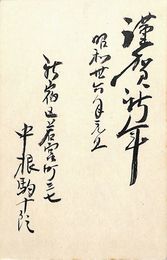 謹賀新年
昭和卅六年元旦
新宿区若宮町二七
中根駒十郎